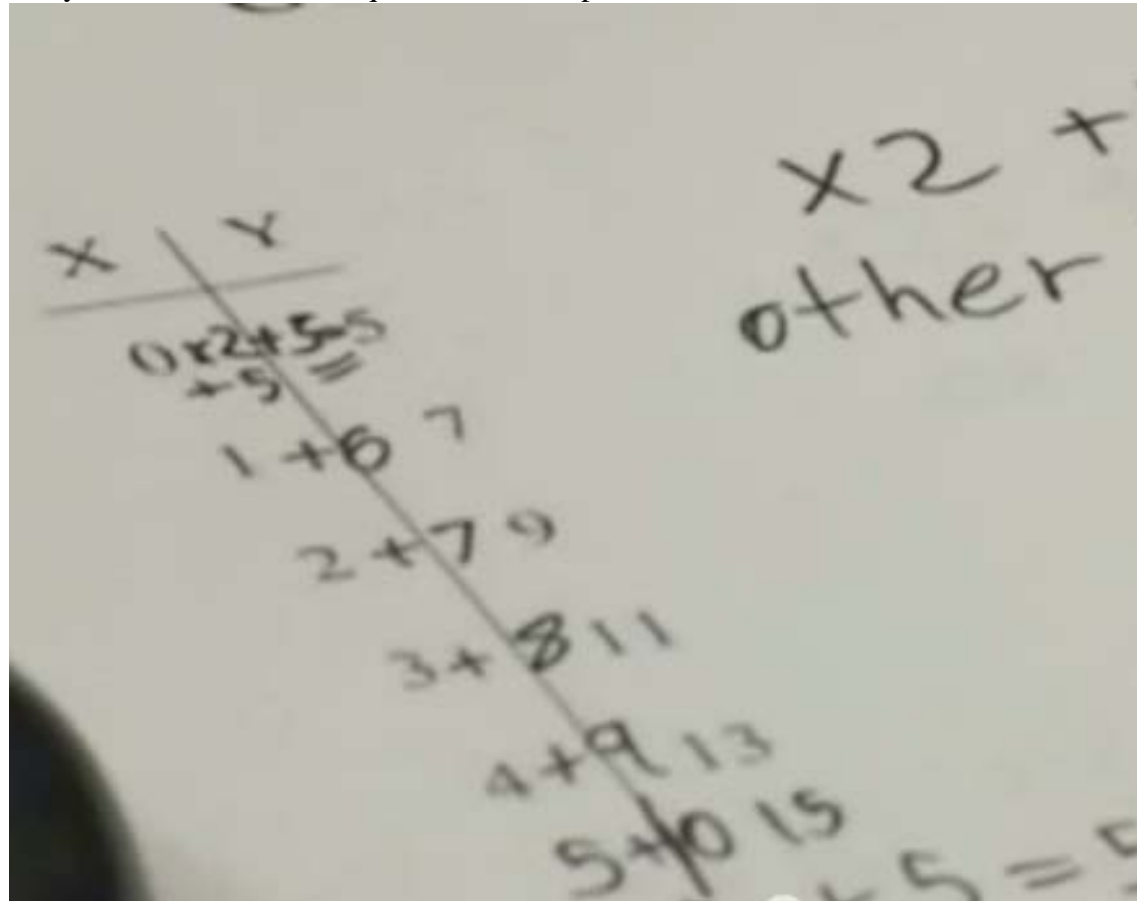 x2 +
other
X Y
0x2+5=5
+5 =
1 +6 7
2 +7 9
3+ 8 11
4+9 13
5+10 15
+ 5 = 5